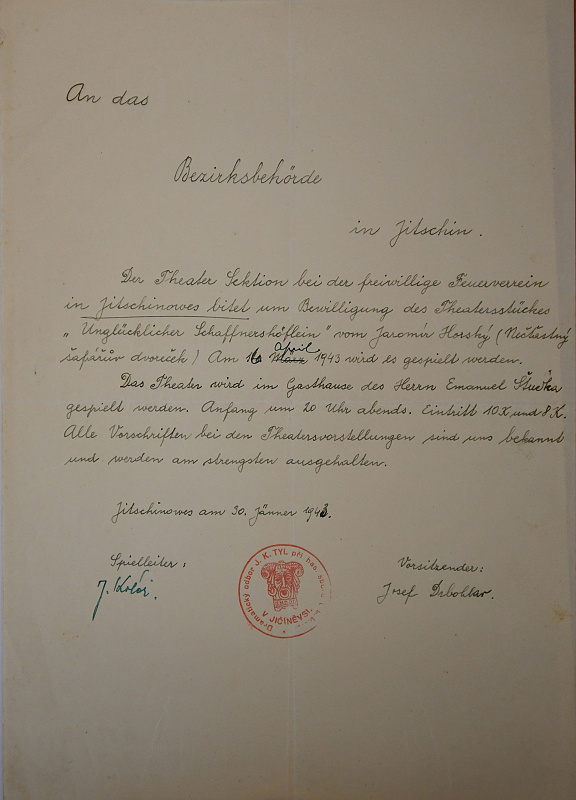 An das
Bezirksbehörde
in Jitschin.
Der Theater Sektion bei der freiwillige Feuerverrein
in Jitschinowes bitet um Bewilligung des Theatersstückes
„Unglücklicher Schaffnershöflein" vom Jaromír Horský (Nešťastný
šafářův dvoreček) Am April 1943 wird es gespielt werden.
Das Theater wird im Gasthause des Herrn Emanuel
gespielt werden. Anfang um 20 Uhr abends. Eintritt 10K und 8K.
Alle Vorschriften bei den Theatersvorstellungen sind uns bekannt
und werden am strengsten ausgehalten.
Jitschinowes am 30. Jänner 1943.
Spielleiter:
Vorsitzender:
J.
Josef
Dramatický odbor J. K. TYL při has.
V JIČINĚVSI.